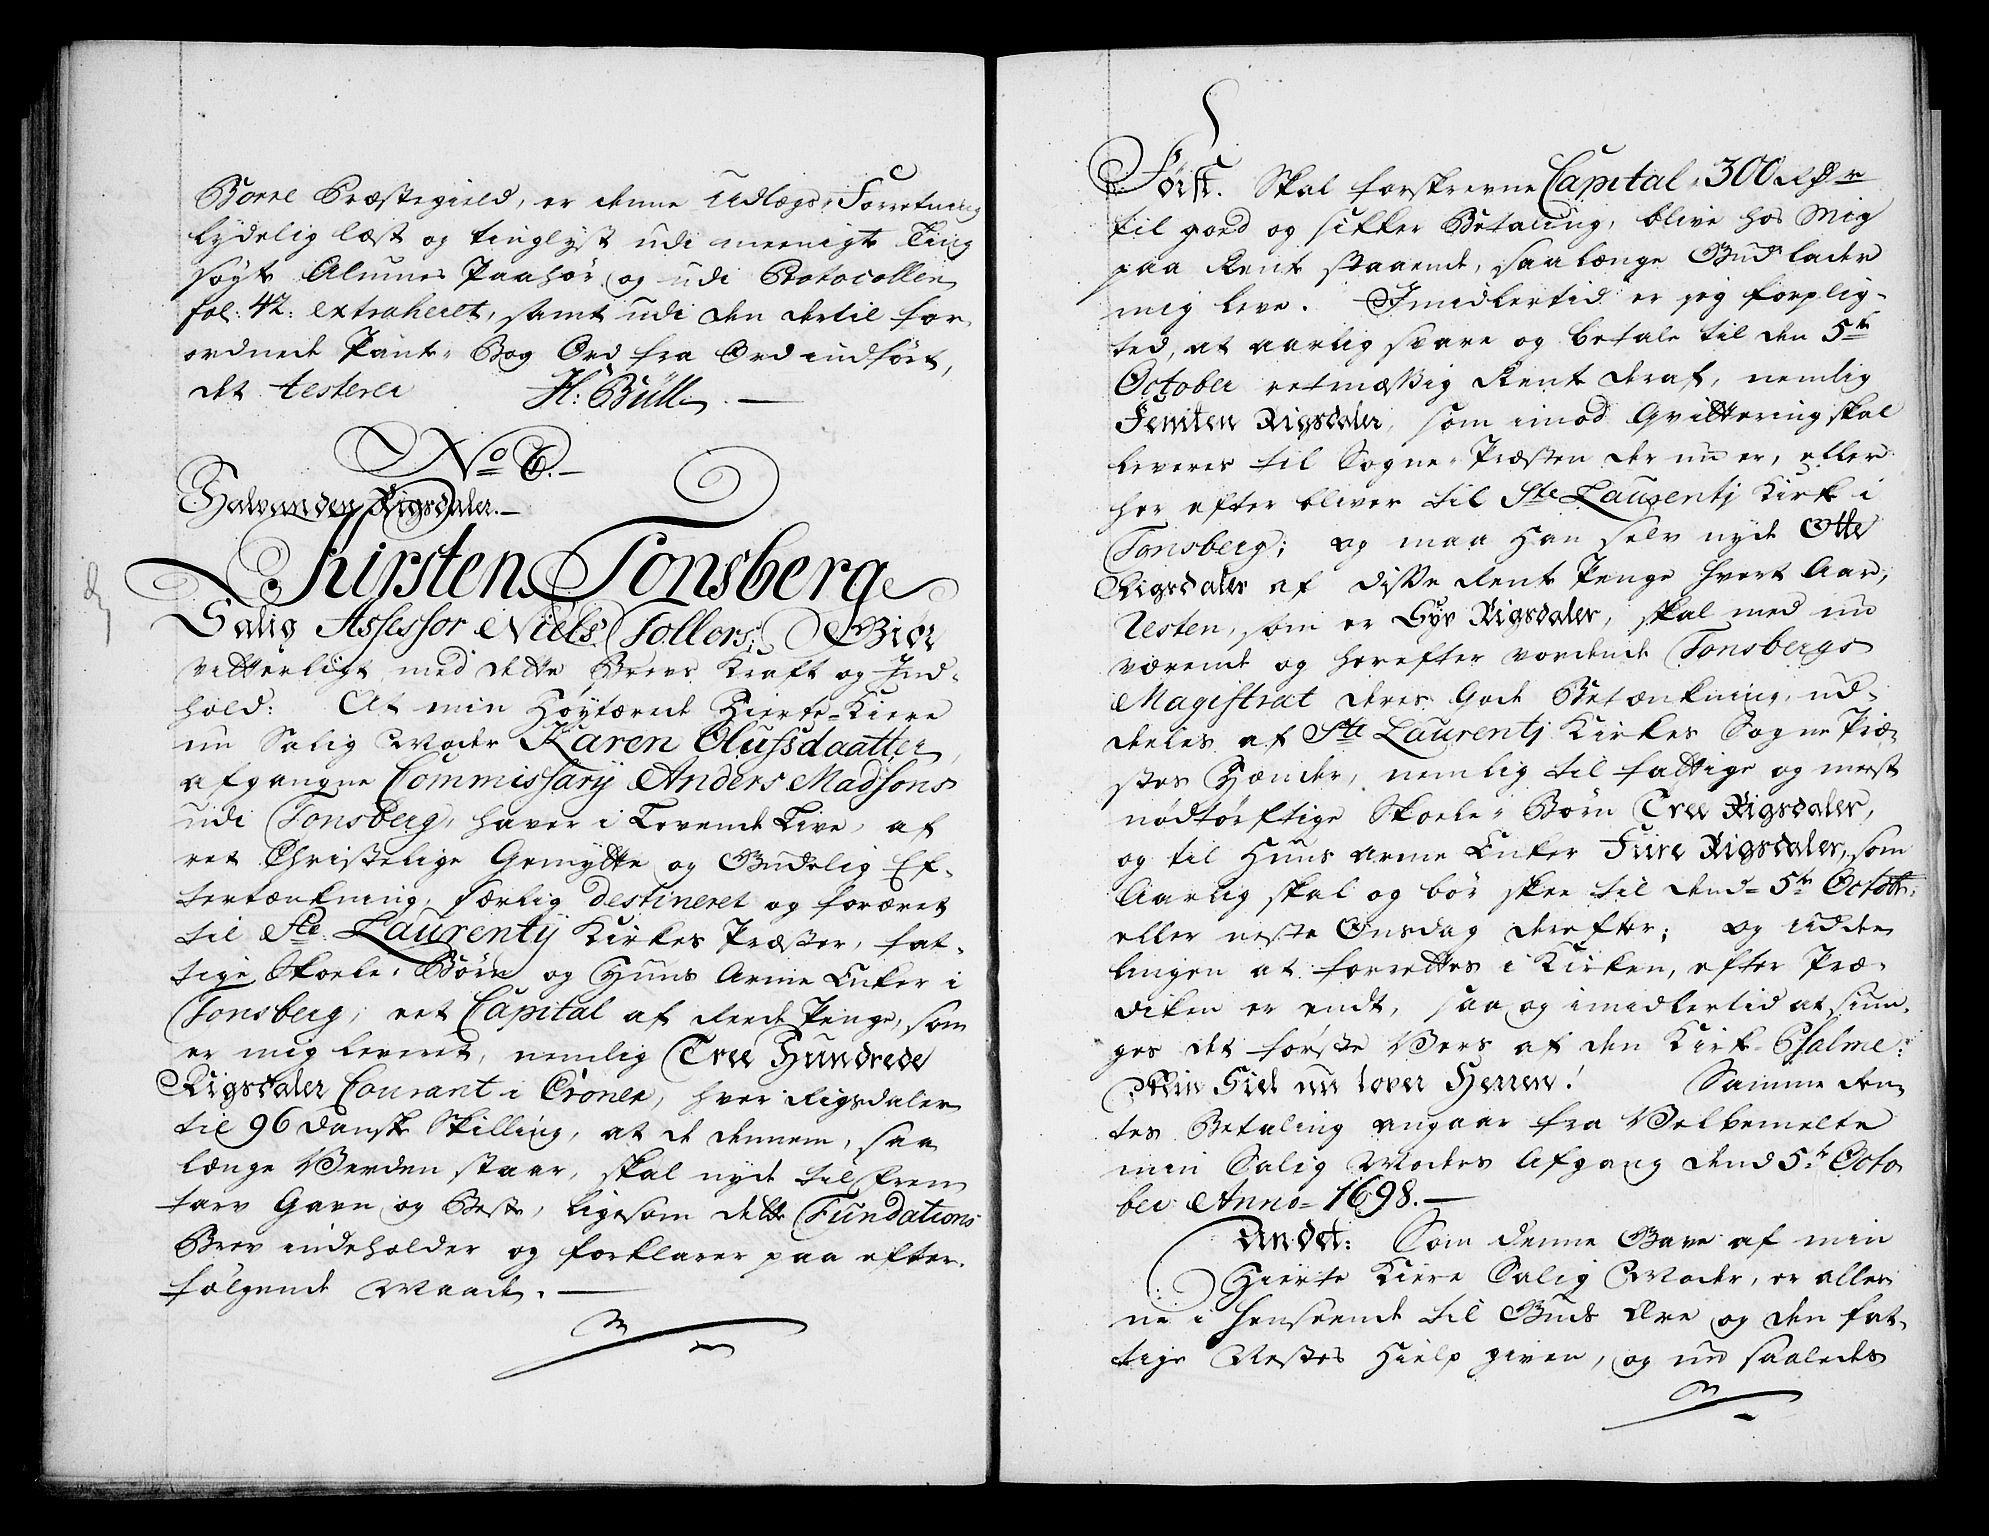 Borre Præstegield, er denne Udlægs-Forretning
lydelig læst og tinglyst udi meenigt Ting
søgt Almues Paahør og udi Protocollen
fol: 42: extraheret, samt udi den dertil for-
ordnede Pant-Bog Ord fra Ord indført,
det testerer H: Büll. —
No 6. —
Halvanden Rigsdaler. —
Kirsten Tonsberg
Salig Assessor Niels Tollers; Giør
vitterligt med dette Brevs Kraft og Ind-
hold: At min Høytærede Hierte-Kiere
nu Salig Moder Karen Olufsdaatter,
afgangne Commissarij Anders Madsøns
udi Tonsberg, haver i Levende Live, af
ret Christelige Gemytte og Gudelig Ef-
tertænkning, særlig destineret og foræret
til Ste Laurentij Kirkes Præster, fat-
tige Skoele-Børn og Huus Arme Enker i
Tonsberg, eet Capital af reede Penge, som
er mig leveret, nemlig Tree Hundrede
Rigsdaler Courant i Croner, hver Rigsdaler
til 96 Dansk Skilling, at de dennem, saa
længe Verden staar, skal nyde til frem-
tarv Gavn og Beste, ligesom dette Fundations
Brev indeholder og forklarer paa efter-
følgende Maade. —
Først. Skal forskrevne Capital 300 Rdr
til goed og sikker Betaling, blive hos Mig
paa Rente staaende, saalænge Gud lader
mig leve. Imidlertid er jeg forplig-
ted, at aarlig svare og betale til den 5te
October retmæssig Rente deraf, nemlig
Femten Rigsdaler, som imod Qvittering skal
leveres til Sogne-Præsten der nu er, eller
her efter bliver til Ste Laurentj Kirke i
Tonsberg; og maa Han selv nyde Otte
Rigsdaler af disse Rente Penge hvert Aar,
Resten, som er Syv Rigsdaler, skal med nu
værende og herefter vordende Tonsbergs
Magistrat deres gode Betænkning, ud-
deeles af Ste Laurentj Kirkes Sogne Præ-
stes Hænder, nemlig til fattige og meest
nødtørftige Skoele-Børn Tree Rigsdaler,
og til Huus arme Enker Fiire Rigsdaler, som
Aarlig skal og bør skee til dend 5te Octobr:
eller neste Onsdag derefter; og Udde-
lingen at forrettes i Kirken, efter Præ-
diken er endt, saa og imidlertid at siun-
ges det første Vers af den Kirke-Psalme:
Min Siel nu lover Herren! Samme Ren-
tes Betaling angaar fra Velbemelte
min Salig Moders Afgang dend 5te Octo-
ber Anno 1698. —
Andet: Som denne Gave af min
Hierte Kiere Salig Moder, er allee-
ne i henseende til Guds Ære og den fat-
tige Næstes Hielp given, og nu saaledes